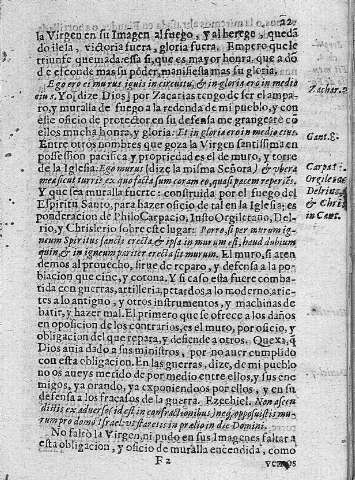 22
la Virgen en su Imagen al fuego, y al herege, quedã
do ilesa, victoria fuera, gloria fuera. Empero que le
triunfe quemada: essa si, que es mayor honra, que a dõ
de esconde mas su poder, manifiesta mas su gloria.
Ego ero ei murus ignis in circuitu, & in gloria ero in medio
eius. Yo(dize Dios) por Zacarias tengo de ser el ampa-
ro, y muralla de fuego a la redonda de mi pueblo, y con
esse oficio de protector en su defensa me grangearè cõ
ellos mucha honra, y gloria: Et in gloria ero in medio eius.
Entre otros nombres que goza la Virgen santissima en
possession pacifica y propriedad es el de muro, y torre
de la Iglesia. Ego murus (dize la misma Señora) & vbera
mea sicut turris ex quo facta sum coram eo, quasi pacem reperiẽs.
Y que sea muralla fuerte: construida por el fuego del
Espiritu Santo, para hazer oficio de tal en la Iglesia; es
ponderacion de Philo Carpacio, Iusto Orgileitano, Del-
rio, y Chrislerio sobre este lugar: Porro, si per murum ig-
neum Spiritus sancti erecta & ipsa in murum est, haud dubium
quin & in igneum pariter erecta sit murum. El muro, si aten
demos al protecho, sirue de reparo, y defensa a la po-
blacion que cine, y corona. Y si caso esta fuere comba-
tida con guerras, artilleria, petardos, a lo moderno, arie-
tes a lo antiguo, y otros instrumentos, y machinas de
batir, y hazer mal. El primero que se ofrece a los daños
en oposicion de los contrarios, es el muro, por oficio, y
obligacion del que repara, y defiende a otros. Quexa, q̃
Dios auia dado a sus ministros, por no auer cumplido
con esta obligacion. En las guerras, dize, de mi pueblo
no os aueys metido de por medio entre ellos, y sus ene
migos, ya orando, ya exponiendoos por ellos, y en su
defensa a los fracasos de la guerra. Ezechiel. Non ascen
ditis ex aduerso id est in confractionibus) neq; opposuistis mu-
rum pro domo Israel: vt staretis in prælio in die Domini.
No faltò la Virgen, ni pudo en sus Imagenes faltar a
esta obligacion, y oficio de muralla encendida, como
F 2
vemos
Zachar. 2
Cant. 8.
Carpat.
Orgileta.
Delrius,
& Chris
in Cant.